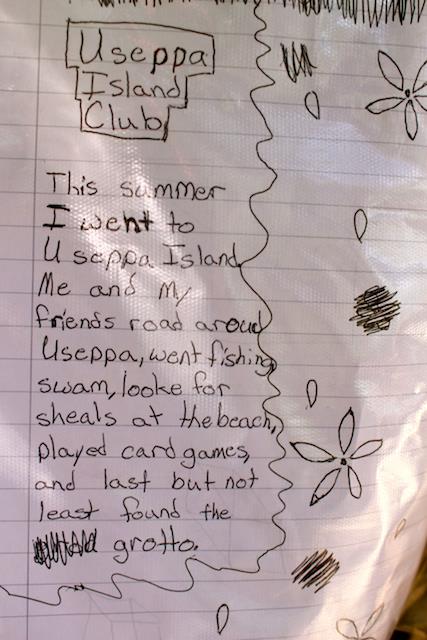 Useppa
Island
Club
This summer
I went to
Useppa Island
Me and My
friends road aroud
Useppa, went fishing
swam, looke for
sheals at the beach,
played card games,
and last but not
least found the
grotto.